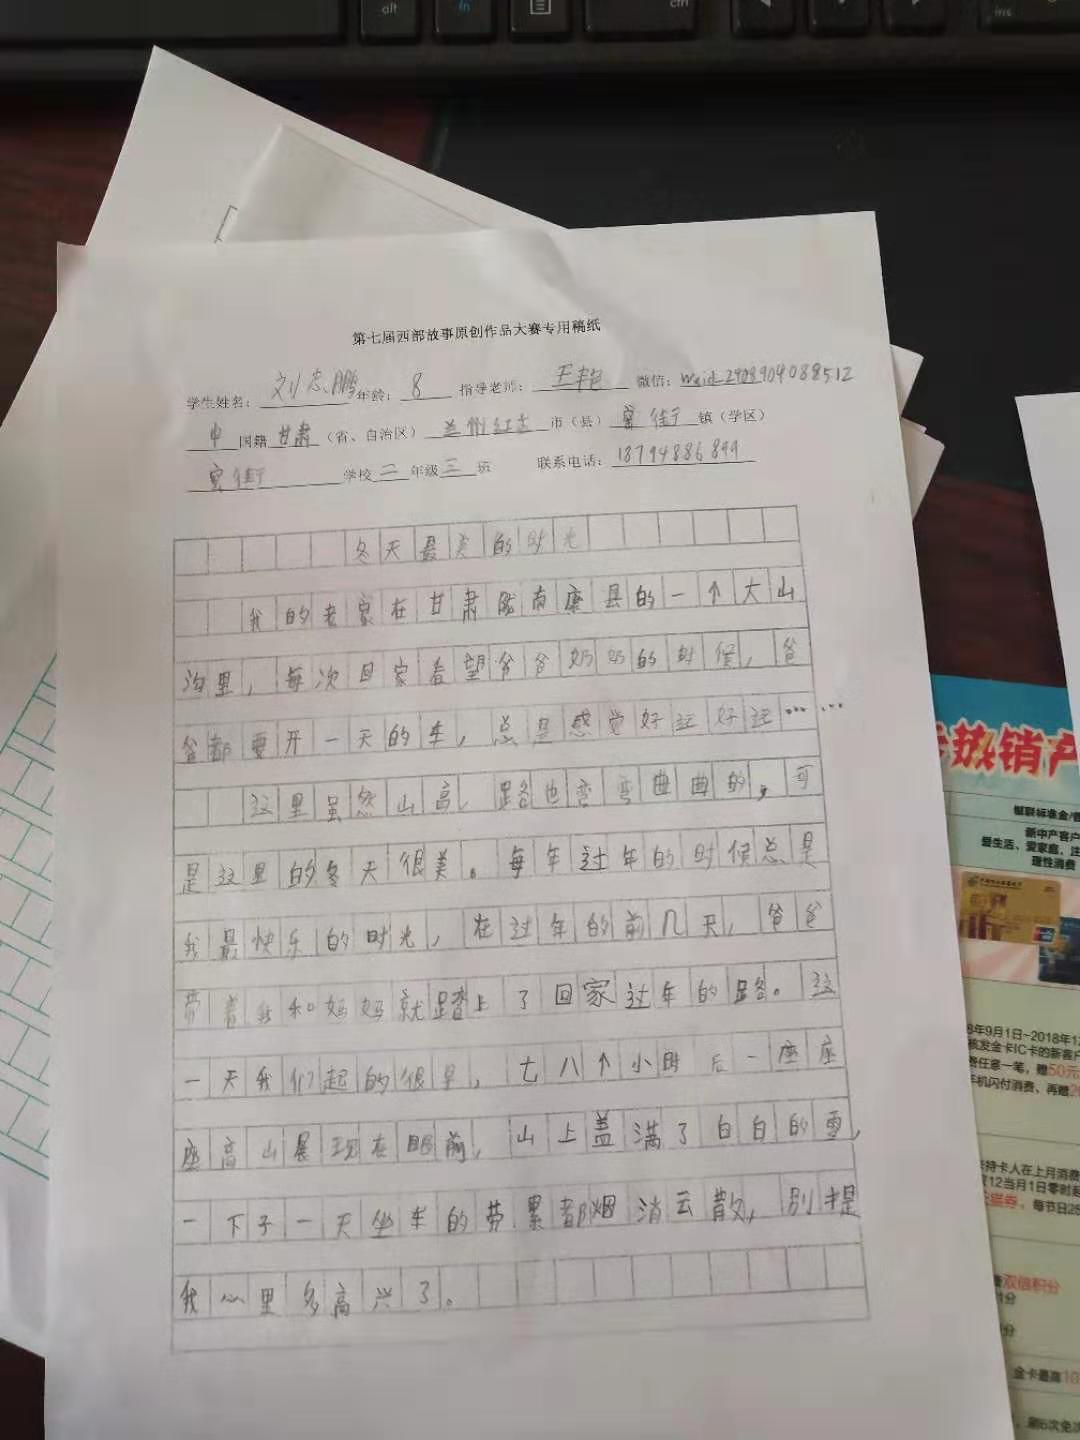 alt
fn
ctrl
ins
第七届西部故事原创作品大赛专用稿纸
学生姓名：刘志鹏 年龄：8 指导老师：王艳 微信：wxid_2908904088512
中 国籍 甘肃（省、自治区）兰州红古 市（县）窑街 镇（学区）
窑街 学校 二 年级 三 班 联系电话：18794886899
冬天最美的时光
我的老家在甘肃陇南康县的一个大山
沟里，每次回家看望爷爷奶奶的时候，爸
爸都要开一天的车，总是感觉好远好远……
这里虽然山高，路也弯弯曲曲的，可
是这里的冬天很美。每年过年的时候总是
我最快乐的时光，在过年的前几天，爸爸
带着我和妈妈就踏上了回家过年的路。这
一天我们起的很早，七八个小时后一座座
座高山展现在眼前，山上盖满了白白的雪，
一下子一天坐车的劳累都烟消云散，别提
我心里多高兴了。
热销产
银联标准金/
新中产客户
爱生活、爱家庭、注
理性消费
8年9月1日~2018年12
核发金卡IC卡的新客户
费任意一笔，赠50元
手机闪付消费，再赠2
持卡人在上月消费
12当月1日零时起
每节日28
双倍积分
1分
分
金卡最高10
刷6次免次